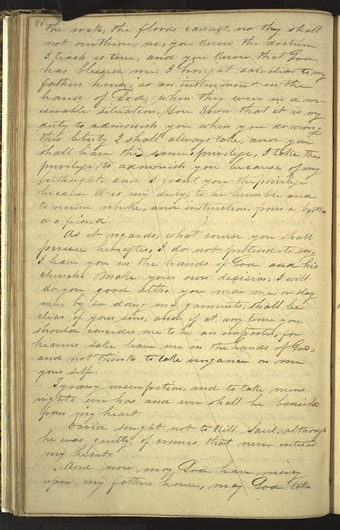 86
the rock, the floods cannot, no they shall
not overthrow me, you know the doctrine
I teach is true, and you know that God
has blessed me, I brought salvation to my
fathers house, as an instrument in the
hand of God, when they were in a m-
iserable situation, You know that it is my
duty to admonish you when you do wrong
this liberty I shall always take, and you
shall have the same privilege, I take the
privilege to admonish you because of my
birthright, and I grant you the privilege
because it is my duty, to be humble and
to receive rebuke, and instruction, from a brother
or a friend.
As it regards, what course you shall
persue hereafter, I do not pretend to say
I leave you in the hands of God and his
church. Make your own decision, I will
do you good altho you mar me, or slay
me, by so doing my garments, shall be
clear of your sins, and if at any time you
should consider me to be an imposter, for
heavens sake leave me in the hands of God,
and not think to take vengance on me
your self.
Tyrany, usurpation, and to take mens
rights ever has and ever shall be banished
from my heart.
David sought not to kill Saul, although
he was guilty of crimes that never entered
my heart.
And now may God have mercy
upon my fathers house, may God take